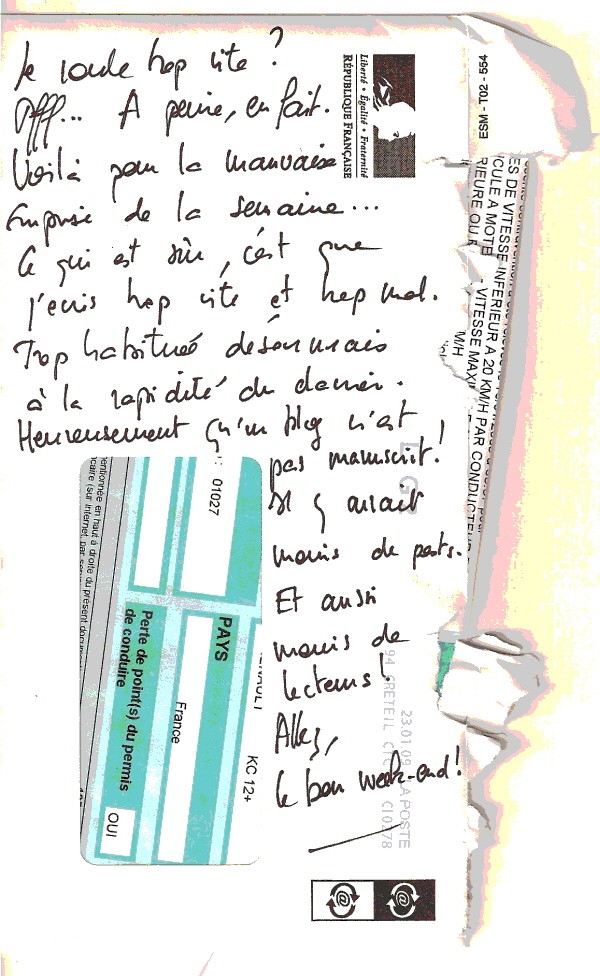 Je roule trop vite ?
Offf... A peine, en fait.
Voilà pour la mauvaise
surprise de la semaine...
Ce qui est sûr, c'est que
j'écris trop vite et trop mal.
Trop habitué désormais
à la rapidité du clavier.
Heureusement qu'un blog n'est
pas manuscrit !
Il y aurait
moins de posts.
Et aussi
moins de
lecteurs !
Allez,
le bon week-end !
Liberté • Égalité • Fraternité
RÉPUBLIQUE FRANÇAISE
ESM - T02 - 554
ES DE VITESSE INFERIEUR A 20 KM/H PAR CONDUCTEUR
CULE A MOTE
VITESSE MAXI
RIEURE OU
M/H
01027
PAYS
France
KC 12+
Perte de point(s) du permis
de conduire
OUI
mentionnée en haut à droite du présent
94 CRETEIL CTC
23.01.09
LA POSTE